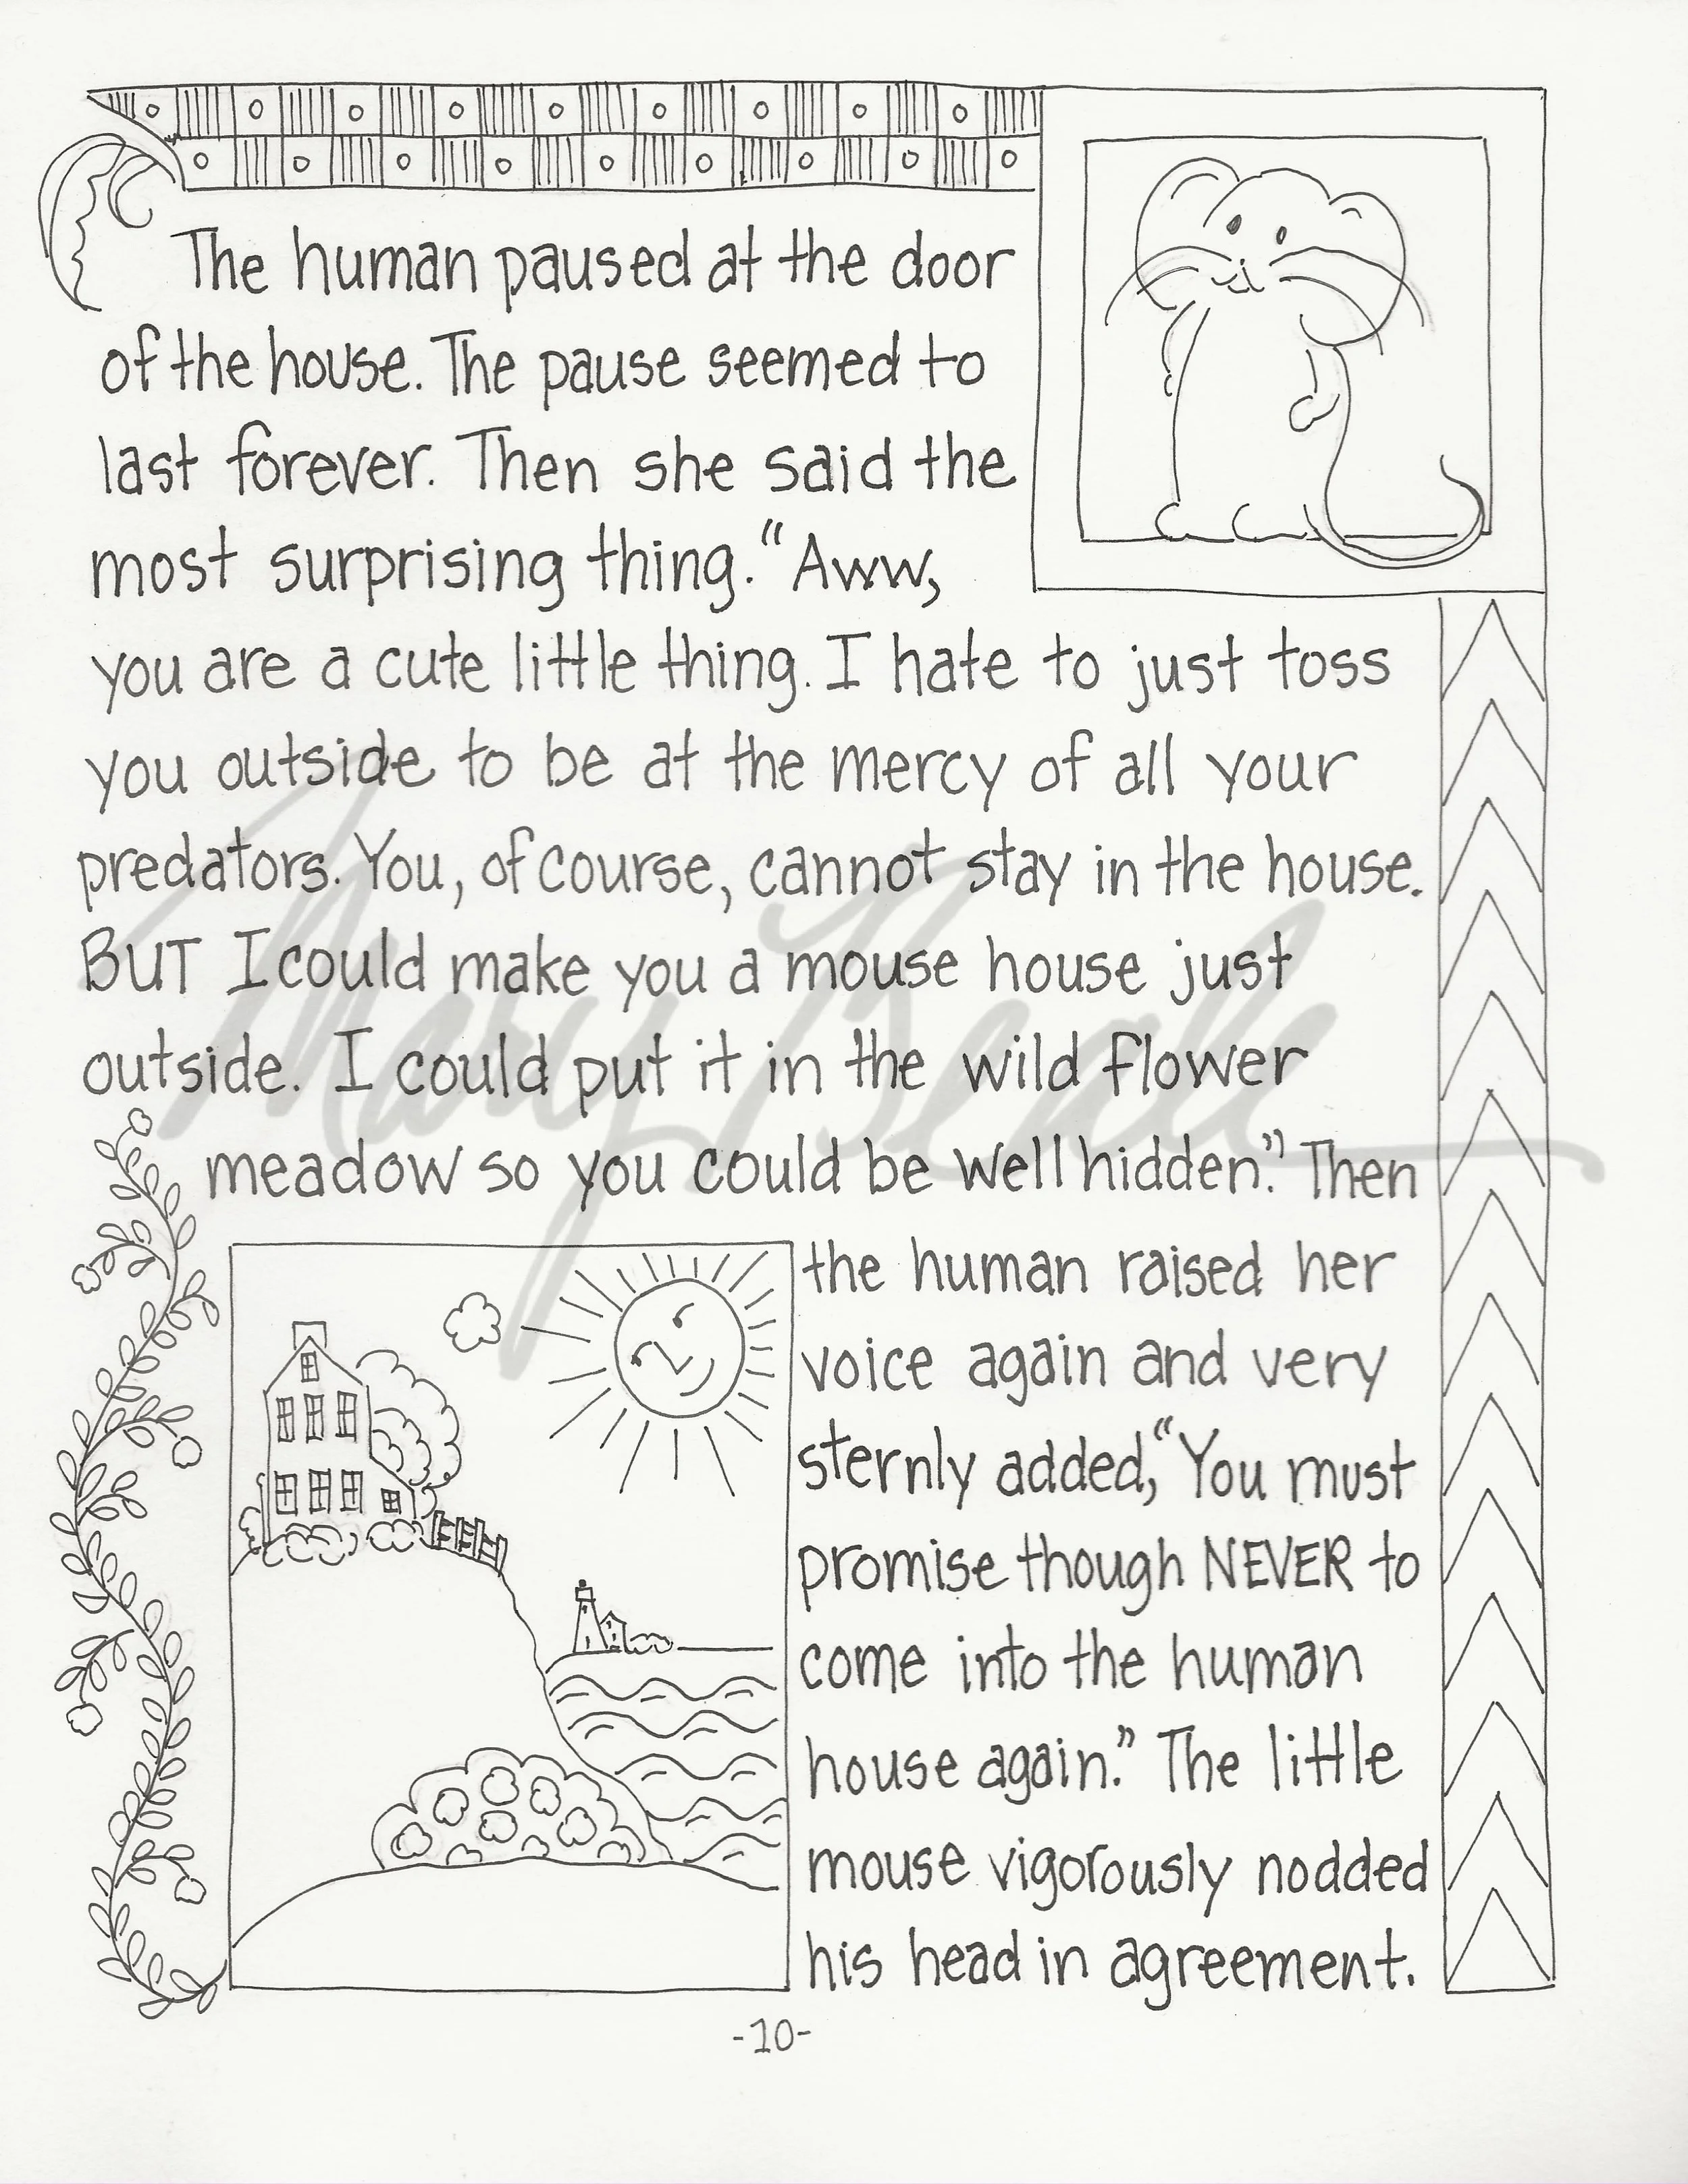 The human paused at the door
of the house. The pause seemed to
last forever. Then she said the
most surprising thing. "Aww,
you are a cute little thing. I hate to just toss
you outside to be at the mercy of all your
predators. You, of course, cannot stay in the house.
BUT I could make you a mouse house just
outside. I could put it in the wild flower
meadow so you could be well hidden." Then
the human raised her
voice again and very
sternly added, "You must
promise though NEVER to
come into the human
house again." The little
mouse vigorously nodded
his head in agreement.
-10-
Mary Beale